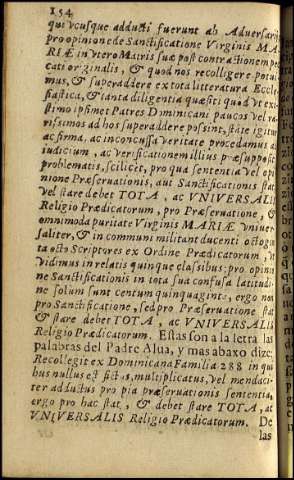 154
qui vcusque adducti fuerunt ab Aduersarijs
pro opinione de Sanctificatione Virginis MA-
RIÆ in vtero Matris sua post contractionem pec
cati originalis, & quod nos recolligere potui-
mus, & superaddere ex tota litteratura Eccle-
siastica, & tanta diligentia quæsiti quod vt ex-
ipsimet Patres Dominicani paucos vel ra-
rissimos ad hos superaddere possint, state igitur
ac firma, ac inconcussa veritate procedamus ad
iudicium, ac verificationem illius præsuppositi
problematis, scilicet, pro qua sententia vel opi-
nione Præseruationis, aut Sanctificationis stat
vel stare debet TOTA, ac VNIVERSALIS
Religio Prædicatorum, pro Præseruatione, &
omnimoda puritate Virginis MARIÆ vniuer-
saliter, & in communi militant ducenti octogin
ta octo Scriptores ex Ordine Prædicatorum, vt
vidimus in relatis quinque classibus: pro opinio
ne Sanctificationis in tota sua confusa latitudi-
ne solum sunt centum quinquaginta, ergo non
pro Sanctificatione, sed pro Præseruatione stat
& stare debet TOTA, ac VNIVERSALIS
Religio Prædicatorum. Estas son a la letra las
palabras del Padre Alua, y mas abaxo dize:
Recollegit ex Dominicana Familia 288 in qui
bus nullus est fictus, multiplicatus, vel mendaci-
ter adductus pro pia præseruationis sententia,
ergo pro hac stat, & debet stare TOTA, ac
VNIVERSALIS Religio Prædicatorum. De
las